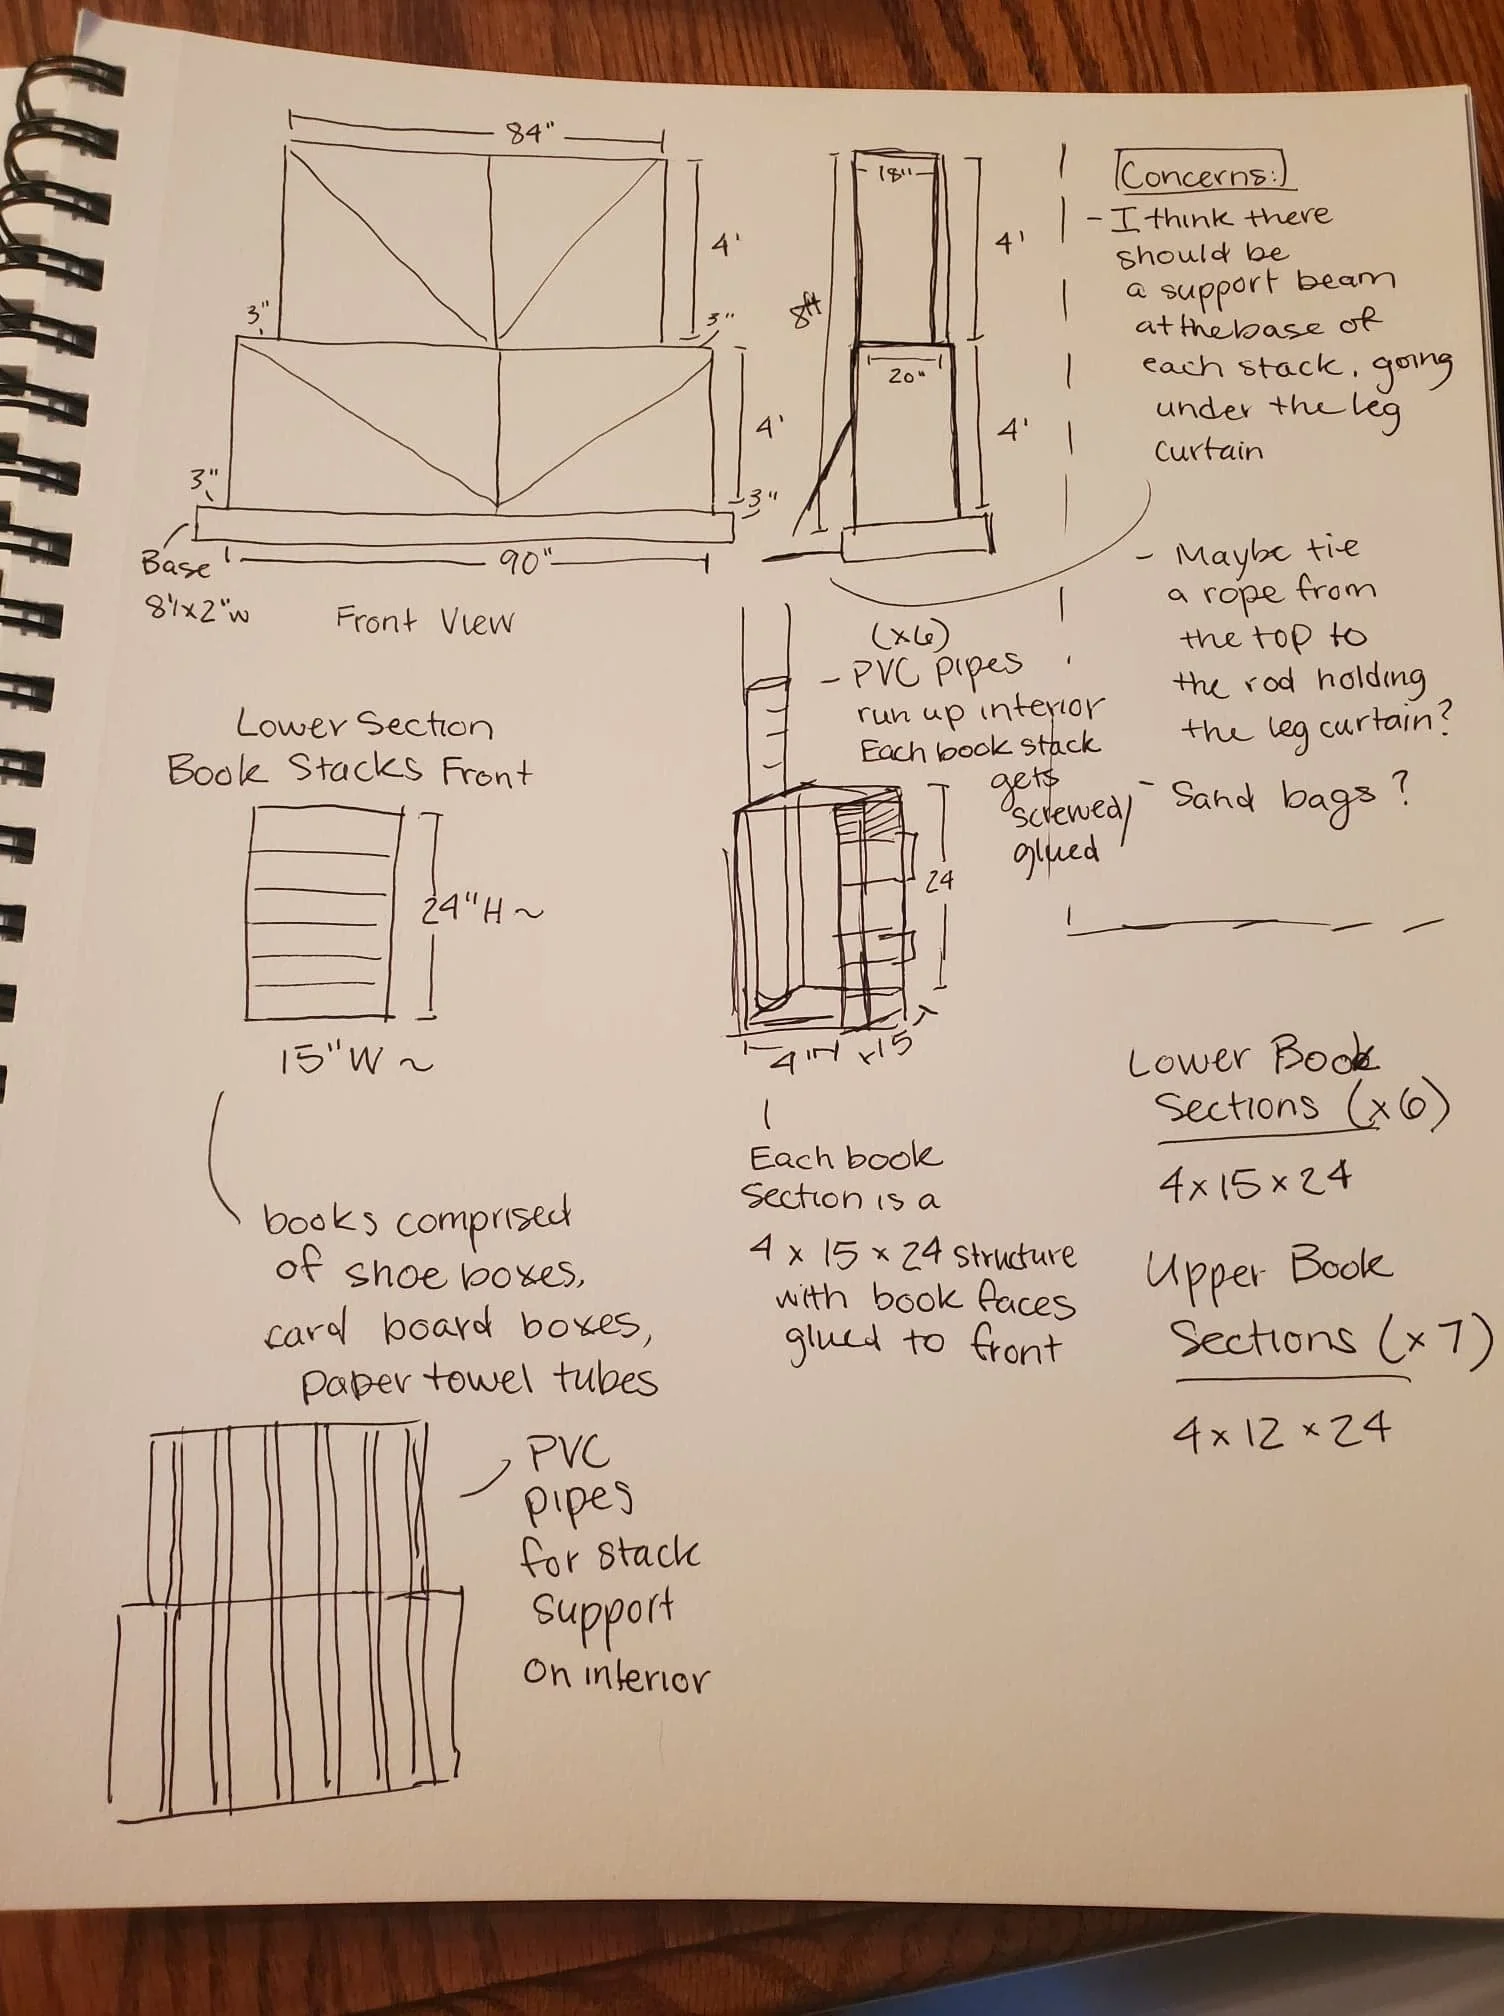 84"
4'
3"
3"
4'
3"
3"
90"
Base
8'l x 2"w
Front View
18"
4'
8ft
20"
4'
Concerns:
- I think there
should be
a support beam
at the base of
each stack, going
under the leg
curtain
- Maybe tie
a rope from
the top to
the rod holding
the leg curtain?
- Sand bags?
(x6)
- PVC pipes
run up interior
Each book stack
gets
screwed/
glued
Lower Section
Book Stacks Front
24"H ~
15"W ~
24
4in x15
books comprised
of shoe boxes,
card board boxes,
paper towel tubes
Each book
Section is a
4 x 15 x 24 structure
with book faces
glued to front
Lower Book
Sections (x6)
4x15x24
Upper Book
Sections (x7)
4x12x24
PVC
pipes
for stack
support
on interior